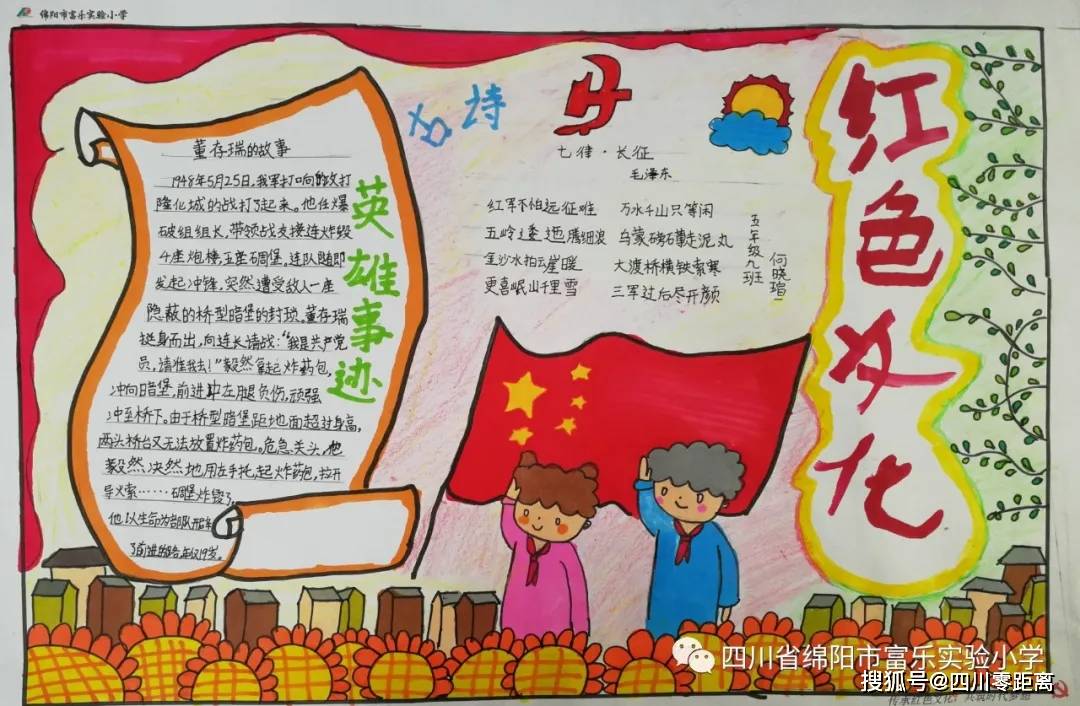 绵阳市富乐实验小学
红色文化
英雄事迹
董存瑞的故事
1948年5月25日,我军打响攻打
隆化城的战打了起来。他任爆
破组组长,带领战友接连炸毁
4座炮楼,五座碉堡,连队随即
发起冲锋,突然遭受敌人一座
隐蔽的桥型暗堡的封锁。董存瑞
挺身而出,向连长请战:“我是共产党
员,请准我去!”毅然拿起炸药包,
冲向暗堡,前进中左腿负伤,顽强
冲至桥下。由于桥型暗堡距地面超过身高,
两头桥台又无法放置炸药包。危急关头,他
毅然决然地用左手托起炸药包,拉开
导火索……碉堡炸毁了,
他以生命为部队开辟
了前进的路年仅19岁。
诗
七律·长征
毛泽东
红军不怕远征难 万水千山只等闲
五岭逶迤腾细浪 乌蒙磅礴走泥丸
金沙水拍云崖暖 大渡桥横铁索寒
更喜岷山千里雪 三军过后尽开颜
五年级九班
何晓瑄
四川省绵阳市富乐实验小学
搜狐号@四川零距离